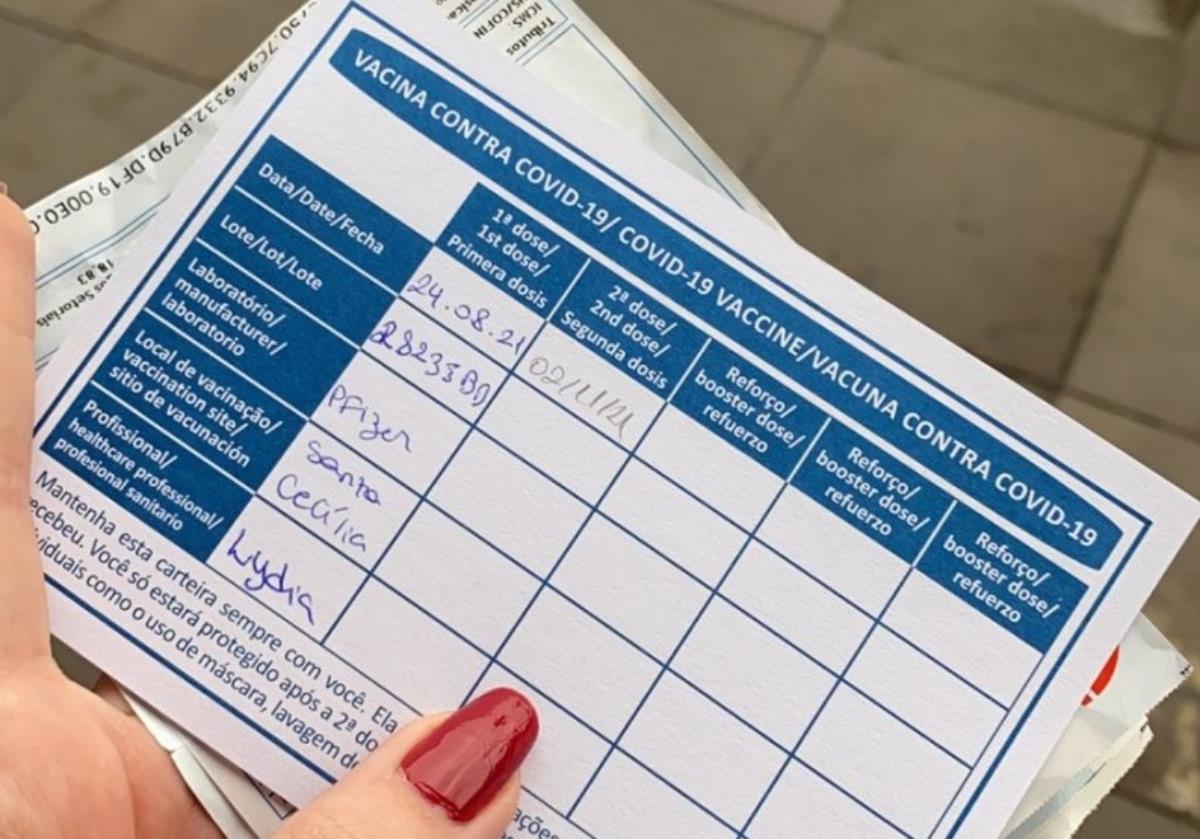 Tributos
ICMS:
IS/COFIN
750.7C94.9332.B79D.DF19.00E0.0
us Setoriais
18,83
VACINA CONTRA COVID-19/ COVID-19 VACCINE/VACUNA CONTRA COVID-19
1ª dose/
1st dose/
Primera dosis
2ª dose/
2nd dose/
Segunda dosis
Reforço/
booster dose/
refuerzo
Reforço/
booster dose/
refuerzo
Reforço/
booster dose/
refuerzo
Data/Date/Fecha
24.08.21
02/11/21
Lote/Lot/Lote
Laboratório/
manufacturer/
laboratorio
Pfizer
Local de vacinação/
vaccination site/
sitio de vacunación
Santa
Cecília
Profissional/
healthcare professional/
profesional sanitario
Lydia
Mantenha esta carteira sempre com você. Ela
ecebeu. Você só estará protegido após a 2ª do
viduais como o uso de máscara, lavagem de
ações